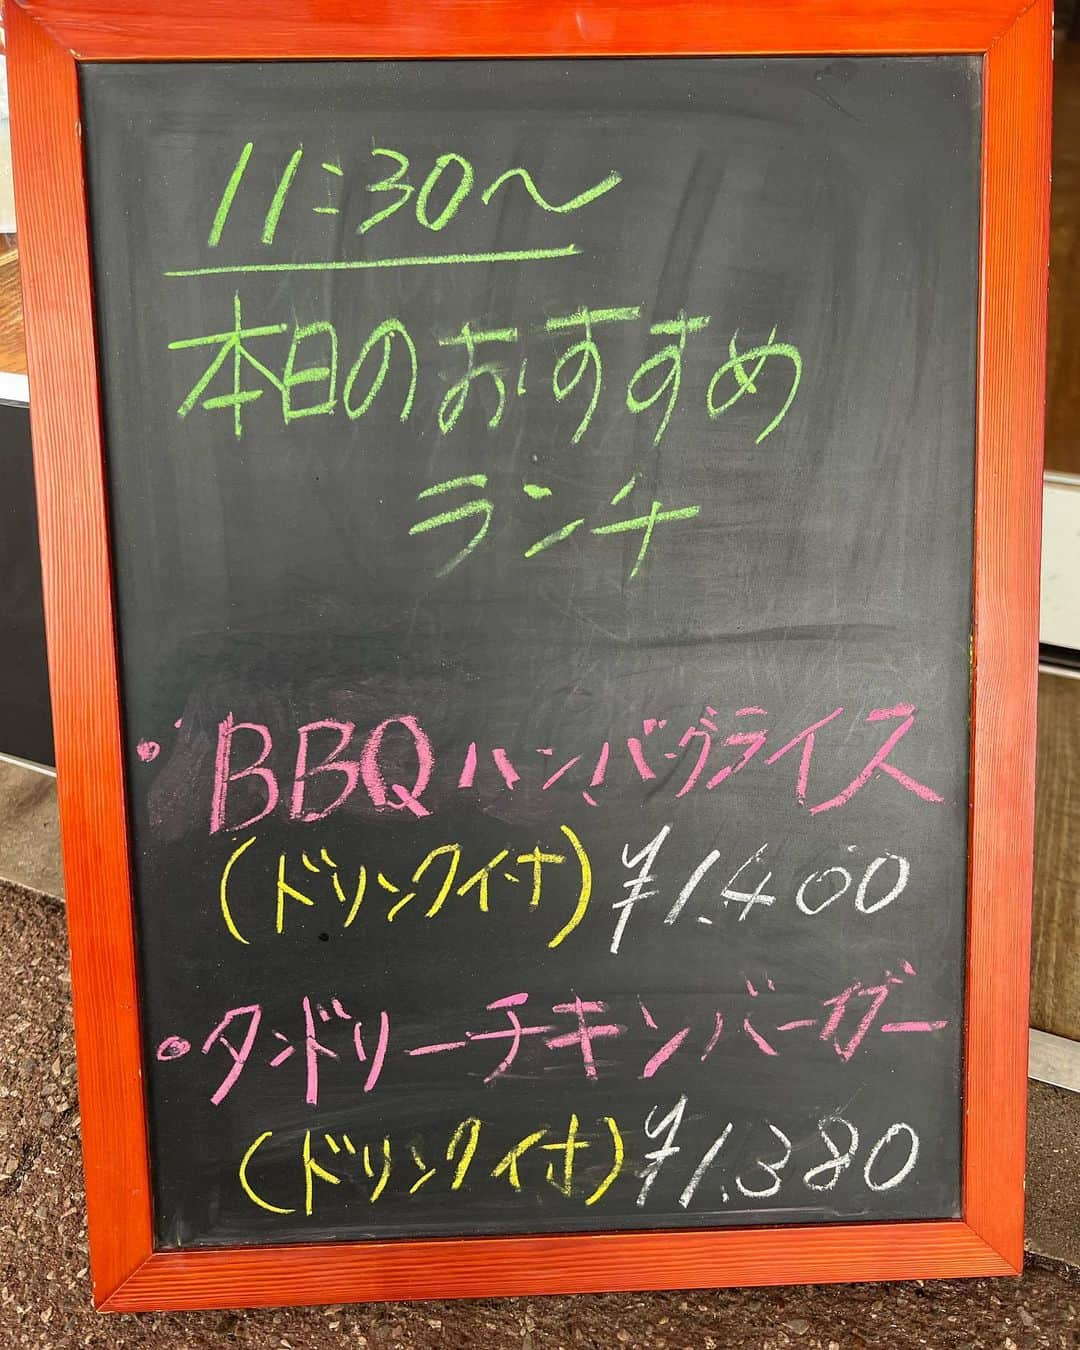 11:30〜
本日のおすすめ
ランチ
・BBQハンバーグライス
(ドリンク付) ¥1.400
・タンドリーチキンバーガー
(ドリンク付) ¥1.380